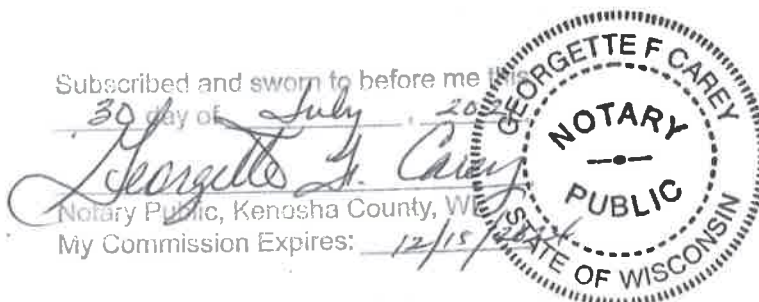 Subscribed and sworn to before me this
30 day of July,
Georgette F. Carey
Notary Public, Kenosha County, WI
My Commission Expires: 12/15/
GEORGETTE F CAREY
NOTARY
PUBLIC
STATE OF WISCONSIN